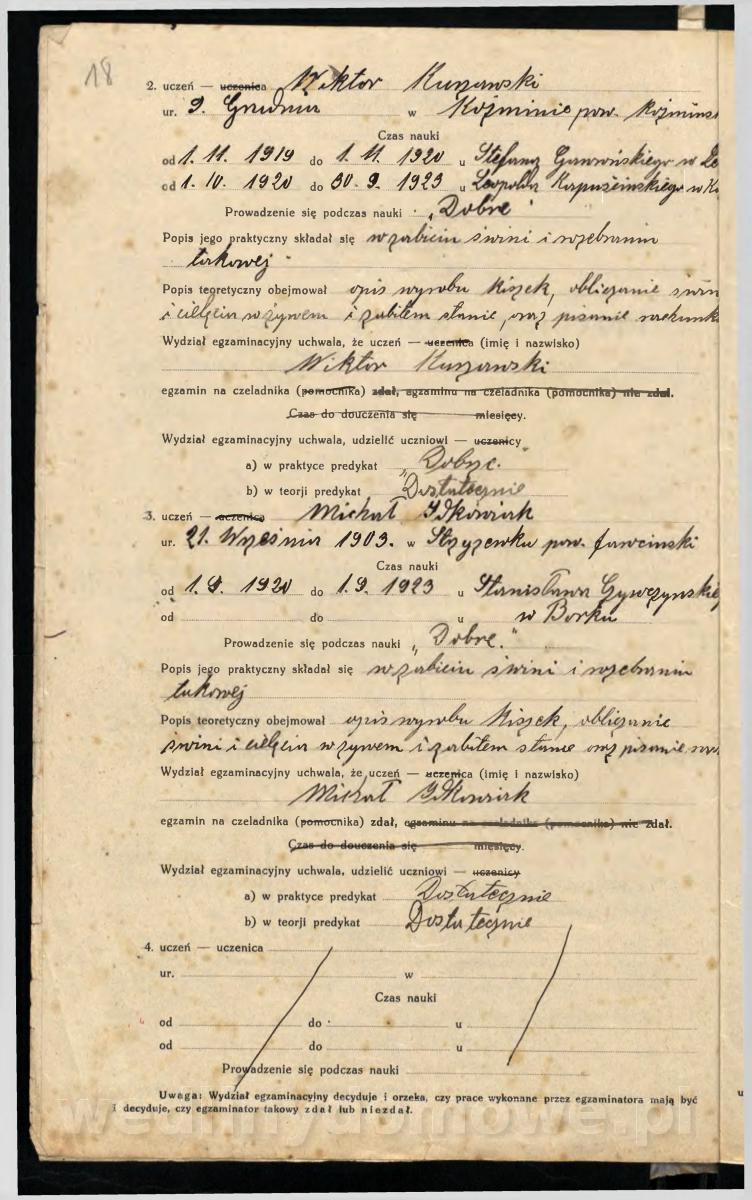 18
2. uczeń — uczenica Wiktor Kurzawski
ur. 9. Grudnia w Koźminie pow. Koźmińs
Czas nauki
od 1. 11. 1919 do 1. 11. 1920 u Stefana w
od 1. 10. 1920 do 30. 9. 1923 u Leopolda w
Prowadzenie się podczas nauki „Dobre"
Popis jego praktyczny składał się w zabiciu świni i rozebraniu
takowej
Popis teoretyczny obejmował opis wyrobu kiszek, obliczanie świn
i cielęcia w żywem i zabitem stanie, oraz pisanie rachunk
Wydział egzaminacyjny uchwala, że uczeń — uczenica (imię i nazwisko)
Wiktor Kurzawski
egzamin na czeladnika (pomocnika) zdał, egzaminu na czeladnika (pomocnika) nie zdał.
Czas do douczenia się miesięcy.
Wydział egzaminacyjny uchwala, udzielić uczniowi — uczenicy
a) w praktyce predykat „Dobrze."
b) w teorji predykat Dostatecznie
3. uczeń — uczenica Michał Idkowiak
ur. 21. Września 1903. w Strzyżewku pow.
Czas nauki
od 1. 9. 1920 do 1. 9. 1923 u Stanisława
od do u w Borku
Prowadzenie się podczas nauki „Dobre."
Popis jego praktyczny składał się w zabiciu świni i rozebraniu
takowej
Popis teoretyczny obejmował opis wyrobu kiszek, obliczanie
świni i cielęcia w żywem i zabitem stanie oraz pisanie
Wydział egzaminacyjny uchwala, że uczeń — uczenica (imię i nazwisko)
Michał Idkowiak
egzamin na czeladnika (pomocnika) zdał, egzaminu na czeladnika (pomocnika) nie zdał.
Czas do douczenia się miesięcy.
Wydział egzaminacyjny uchwala, udzielić uczniowi — uczenicy
a) w praktyce predykat Dostatecznie
b) w teorji predykat Dostatecznie
4. uczeń — uczenica
ur. w
Czas nauki
od do u
od do u
Prowadzenie się podczas nauki
Uwaga: Wydział egzaminacyjny decyduje i orzeka, czy prace wykonane przez egzaminatora mają być
i decyduje, czy egzaminator takowy zdał lub niezdał.